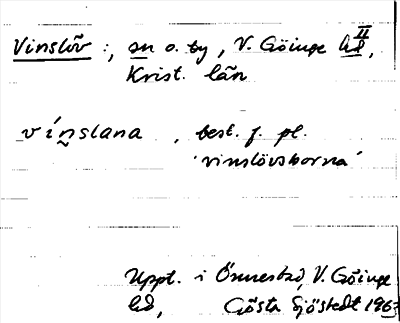 Vinslöv :, sn o. by, V. Göinge hd II,
Krist. län
vínslana , best. f. pl.
'vinslövsborna'
Uppt. i Önnestad, V. Göinge
hd, Gösta Sjöstedt 1963